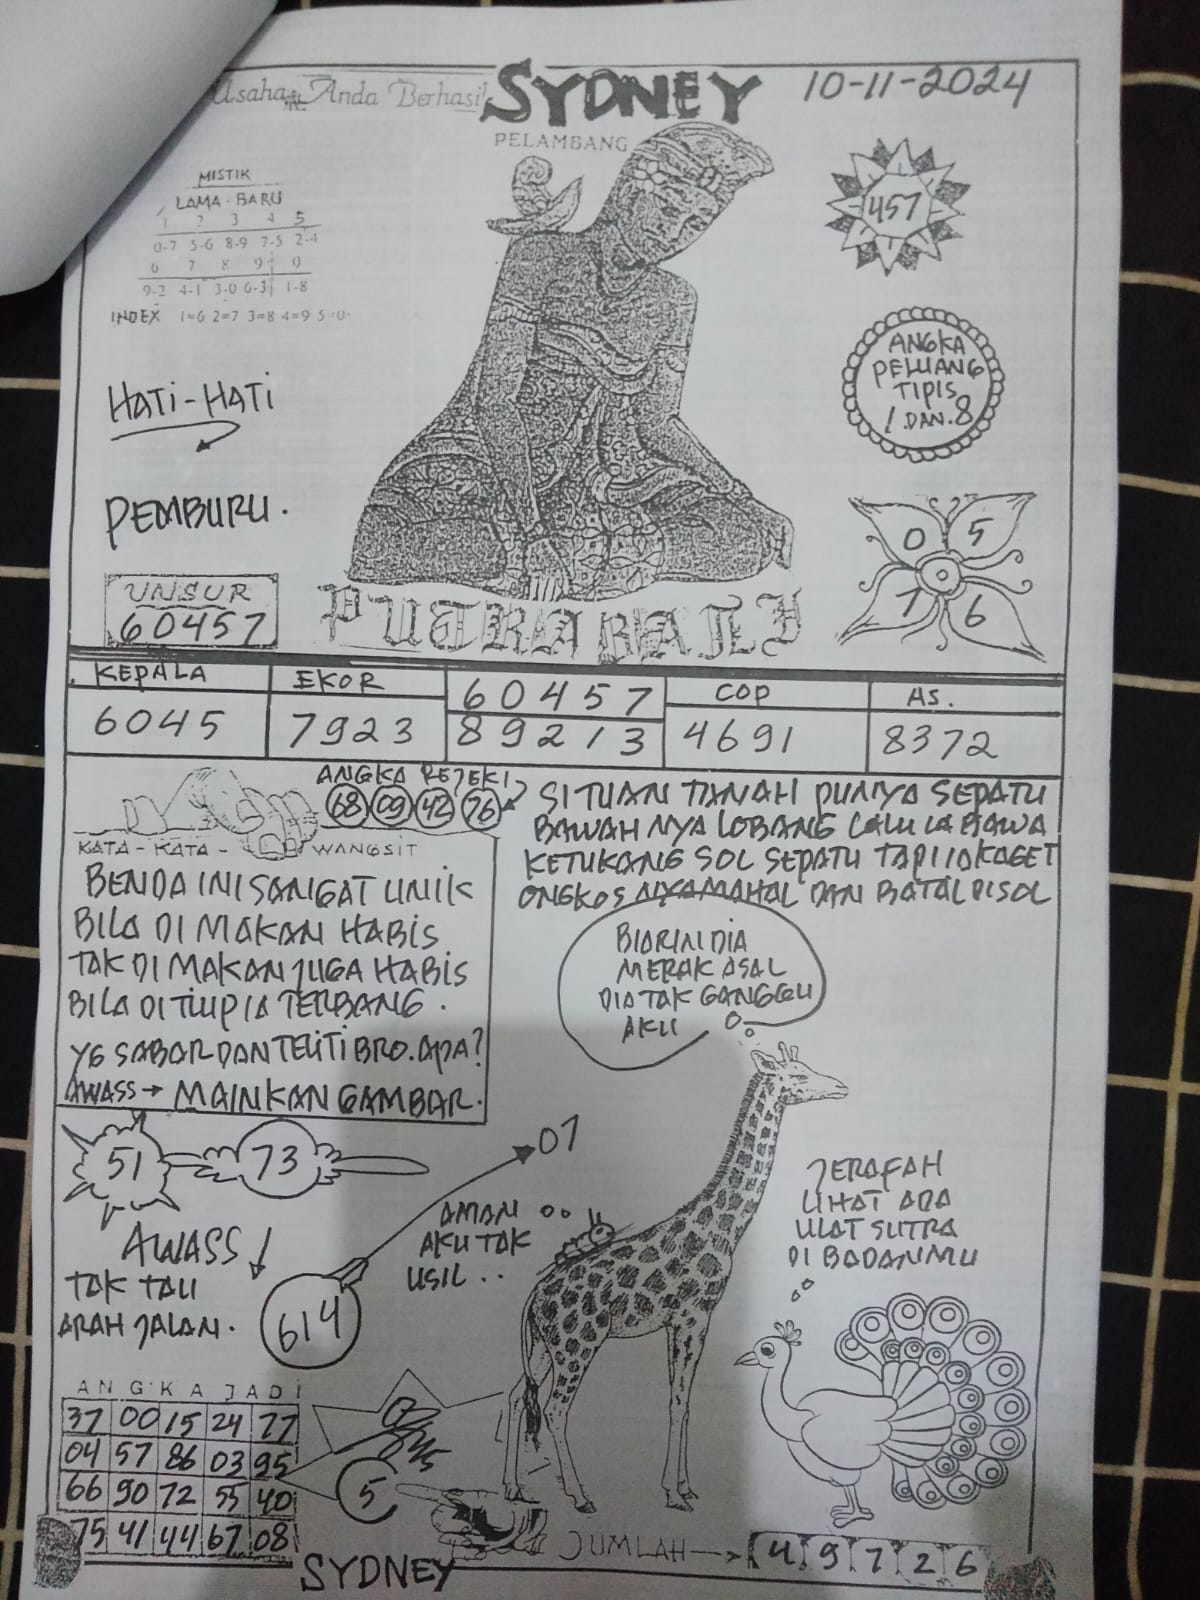 Usaha Anda Berhasil
SYDNEY
10-11-2024
PELAMBANG
MISTIK
LAMA - BARU
1 2 3 4 5
0-7 5-6 8-9 7-5 2-4
6 7 8 9 0
9-2 4-1 3-0 6-3 1-8
INDEX 1=6 2=7 3=8 4=9 5=0
457
ANGKA
PELUANG
TIPIS
1 DAN.8
HATI-HATI
PEMBURU.
0 5
7 6
UNSUR
60457
PUTRA BALI
KEPALA
6045
EKOR
7923
60457
89213
COP
4691
AS.
8372
ANGKA REJEKI
68 09 42 76
KATA - KATA - WANGSIT
BENDA INI SANGAT UNIK
BILA DI MAKAN HABIS
TAK DI MAKAN JUGA HABIS
BILA DI TIUP IA TERBANG.
YG SABAR DAN TELITI BRO. APA?
AWASS → MAINKAN GAMBAR.
SI TUAN TANAH PUNYA SEPATU
BAWAH NYA LOBANG LALU IA BAWA
KETUKANG SOL SEPATU TAPI IA KAGET
ONGKOS NYA MAHAL DAN BATAL DI SOL
BIARIN DIA
MERAK ASAL
DIA TAK GANGGU
AKU
51 73
07
AMAN
AKU TAK
USIL..
JERAFAH
LIHAT ADA
ULAT SUTRA
DI BADANMU
AWASS
TAK TAU
ARAH JALAN.
614
ANGKA JADI
37 00 15 24 77
04 57 86 03 95
66 90 72 55 40
75 41 44 67 08
5
JUMLAH → 4 9 7 2 6
SYDNEY